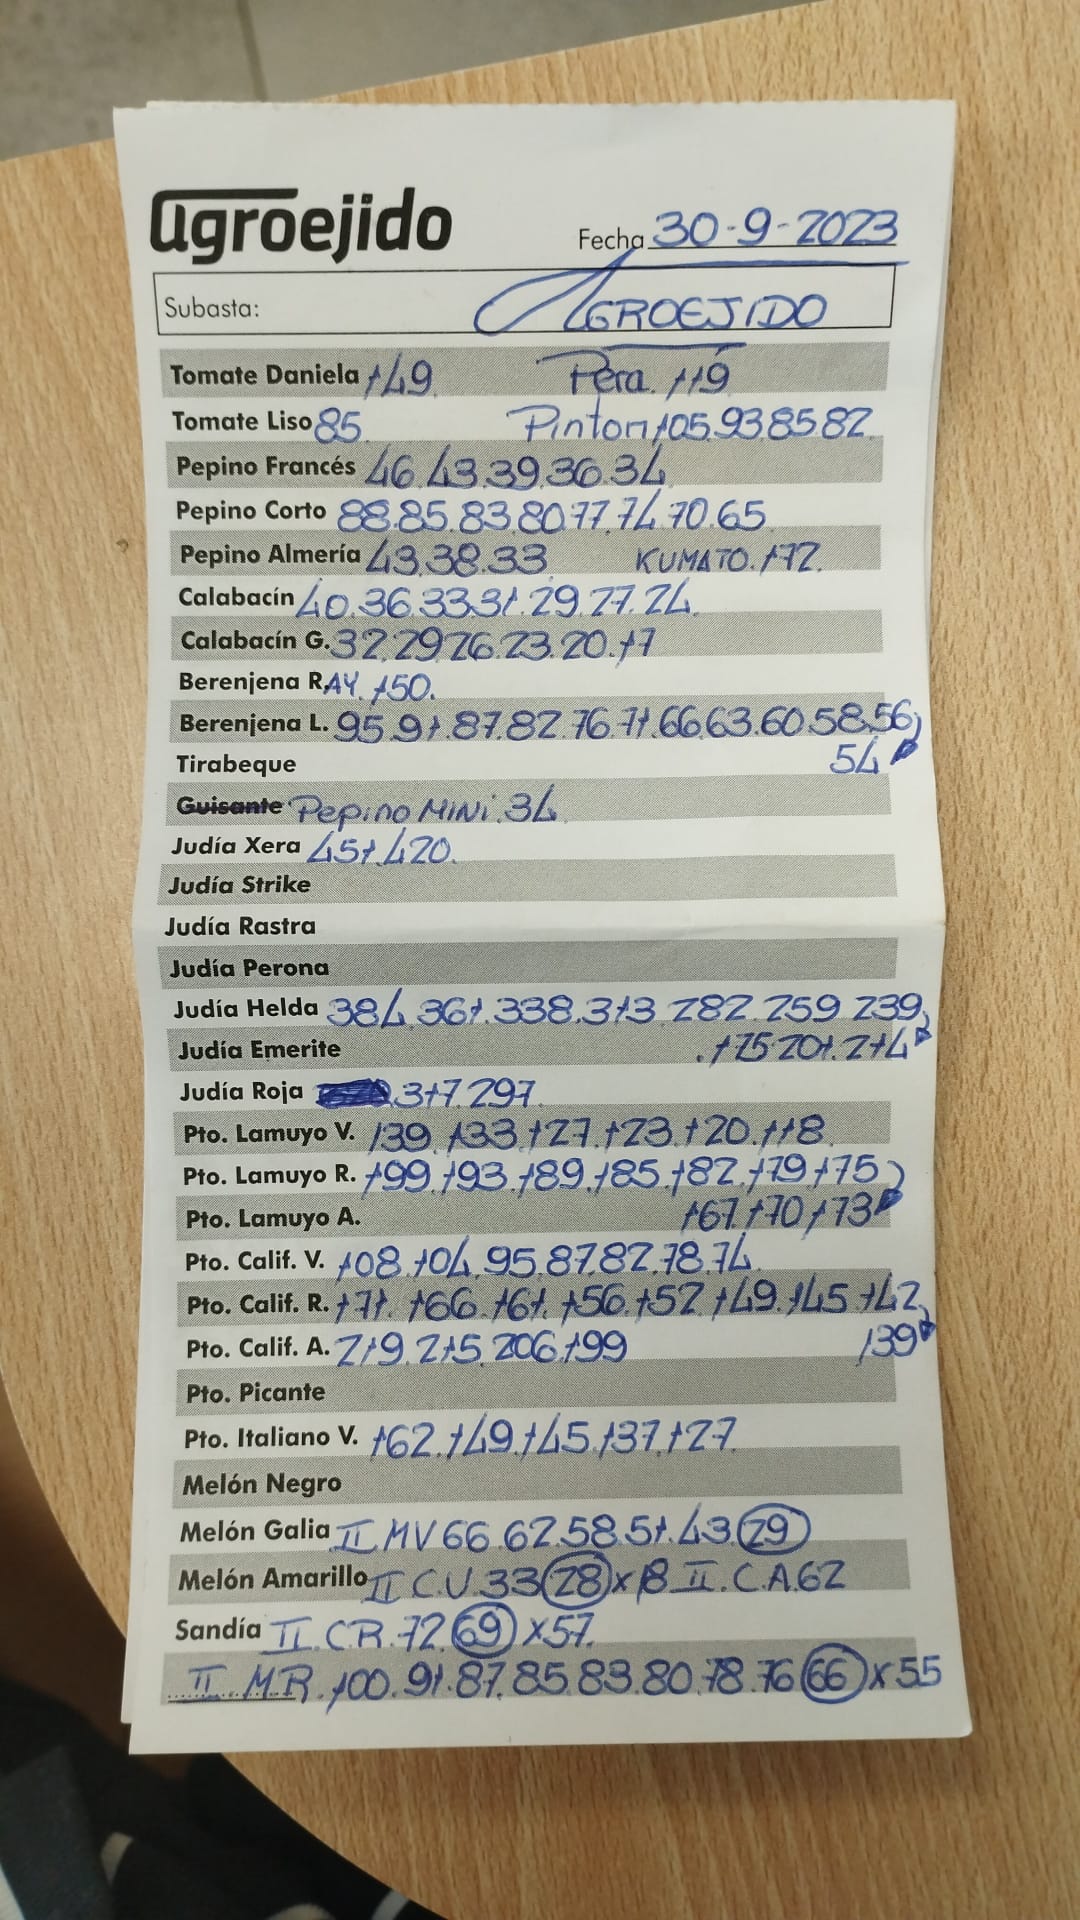 agroejido
Fecha 30-9-2023
Subasta: AGROEJIDO
Tomate Daniela 149 Pera. 119
Tomate Liso 85 Pinton 105.93.85.82
Pepino Francés 46.43.39.36.34
Pepino Corto 88.85.83.80.77.74.70.65
Pepino Almería 43.38.33 KUMATO. 172
Calabacín 40.36.33.31.29.27.24.
Calabacín G. 32.29.26.23.20.17
Berenjena R. AY. 150.
Berenjena L. 95.91.87.82.76.71.66.63.60.58.56
Tirabeque 54
Guisante Pepino MINI.34
Judía Xera 451.420.
Judía Strike
Judía Rastra
Judía Perona
Judía Helda 384.361.338.313.282.259.239
Judía Emerite .175.201.214
Judía Roja 317.297.
Pto. Lamuyo V. 139.133.127.123.120.118
Pto. Lamuyo R. 199.193.189.185.182.179.175
Pto. Lamuyo A. 167.170.173
Pto. Calif. V. 108.104.95.87.82.78.74
Pto. Calif. R. 171.166.161.156.152.149.145.142
Pto. Calif. A. 219.215.206.199 139
Pto. Picante
Pto. Italiano V. 162.149.145.137.127
Melón Negro
Melón Galia II MV 66.62.58.51.43 29
Melón Amarillo II C.V. 33 28 x 18 II.C.A.62
Sandía II.C.R.72. 69 x57.
II.M.R.100.91.87.85.83.80.78.76 66 x55